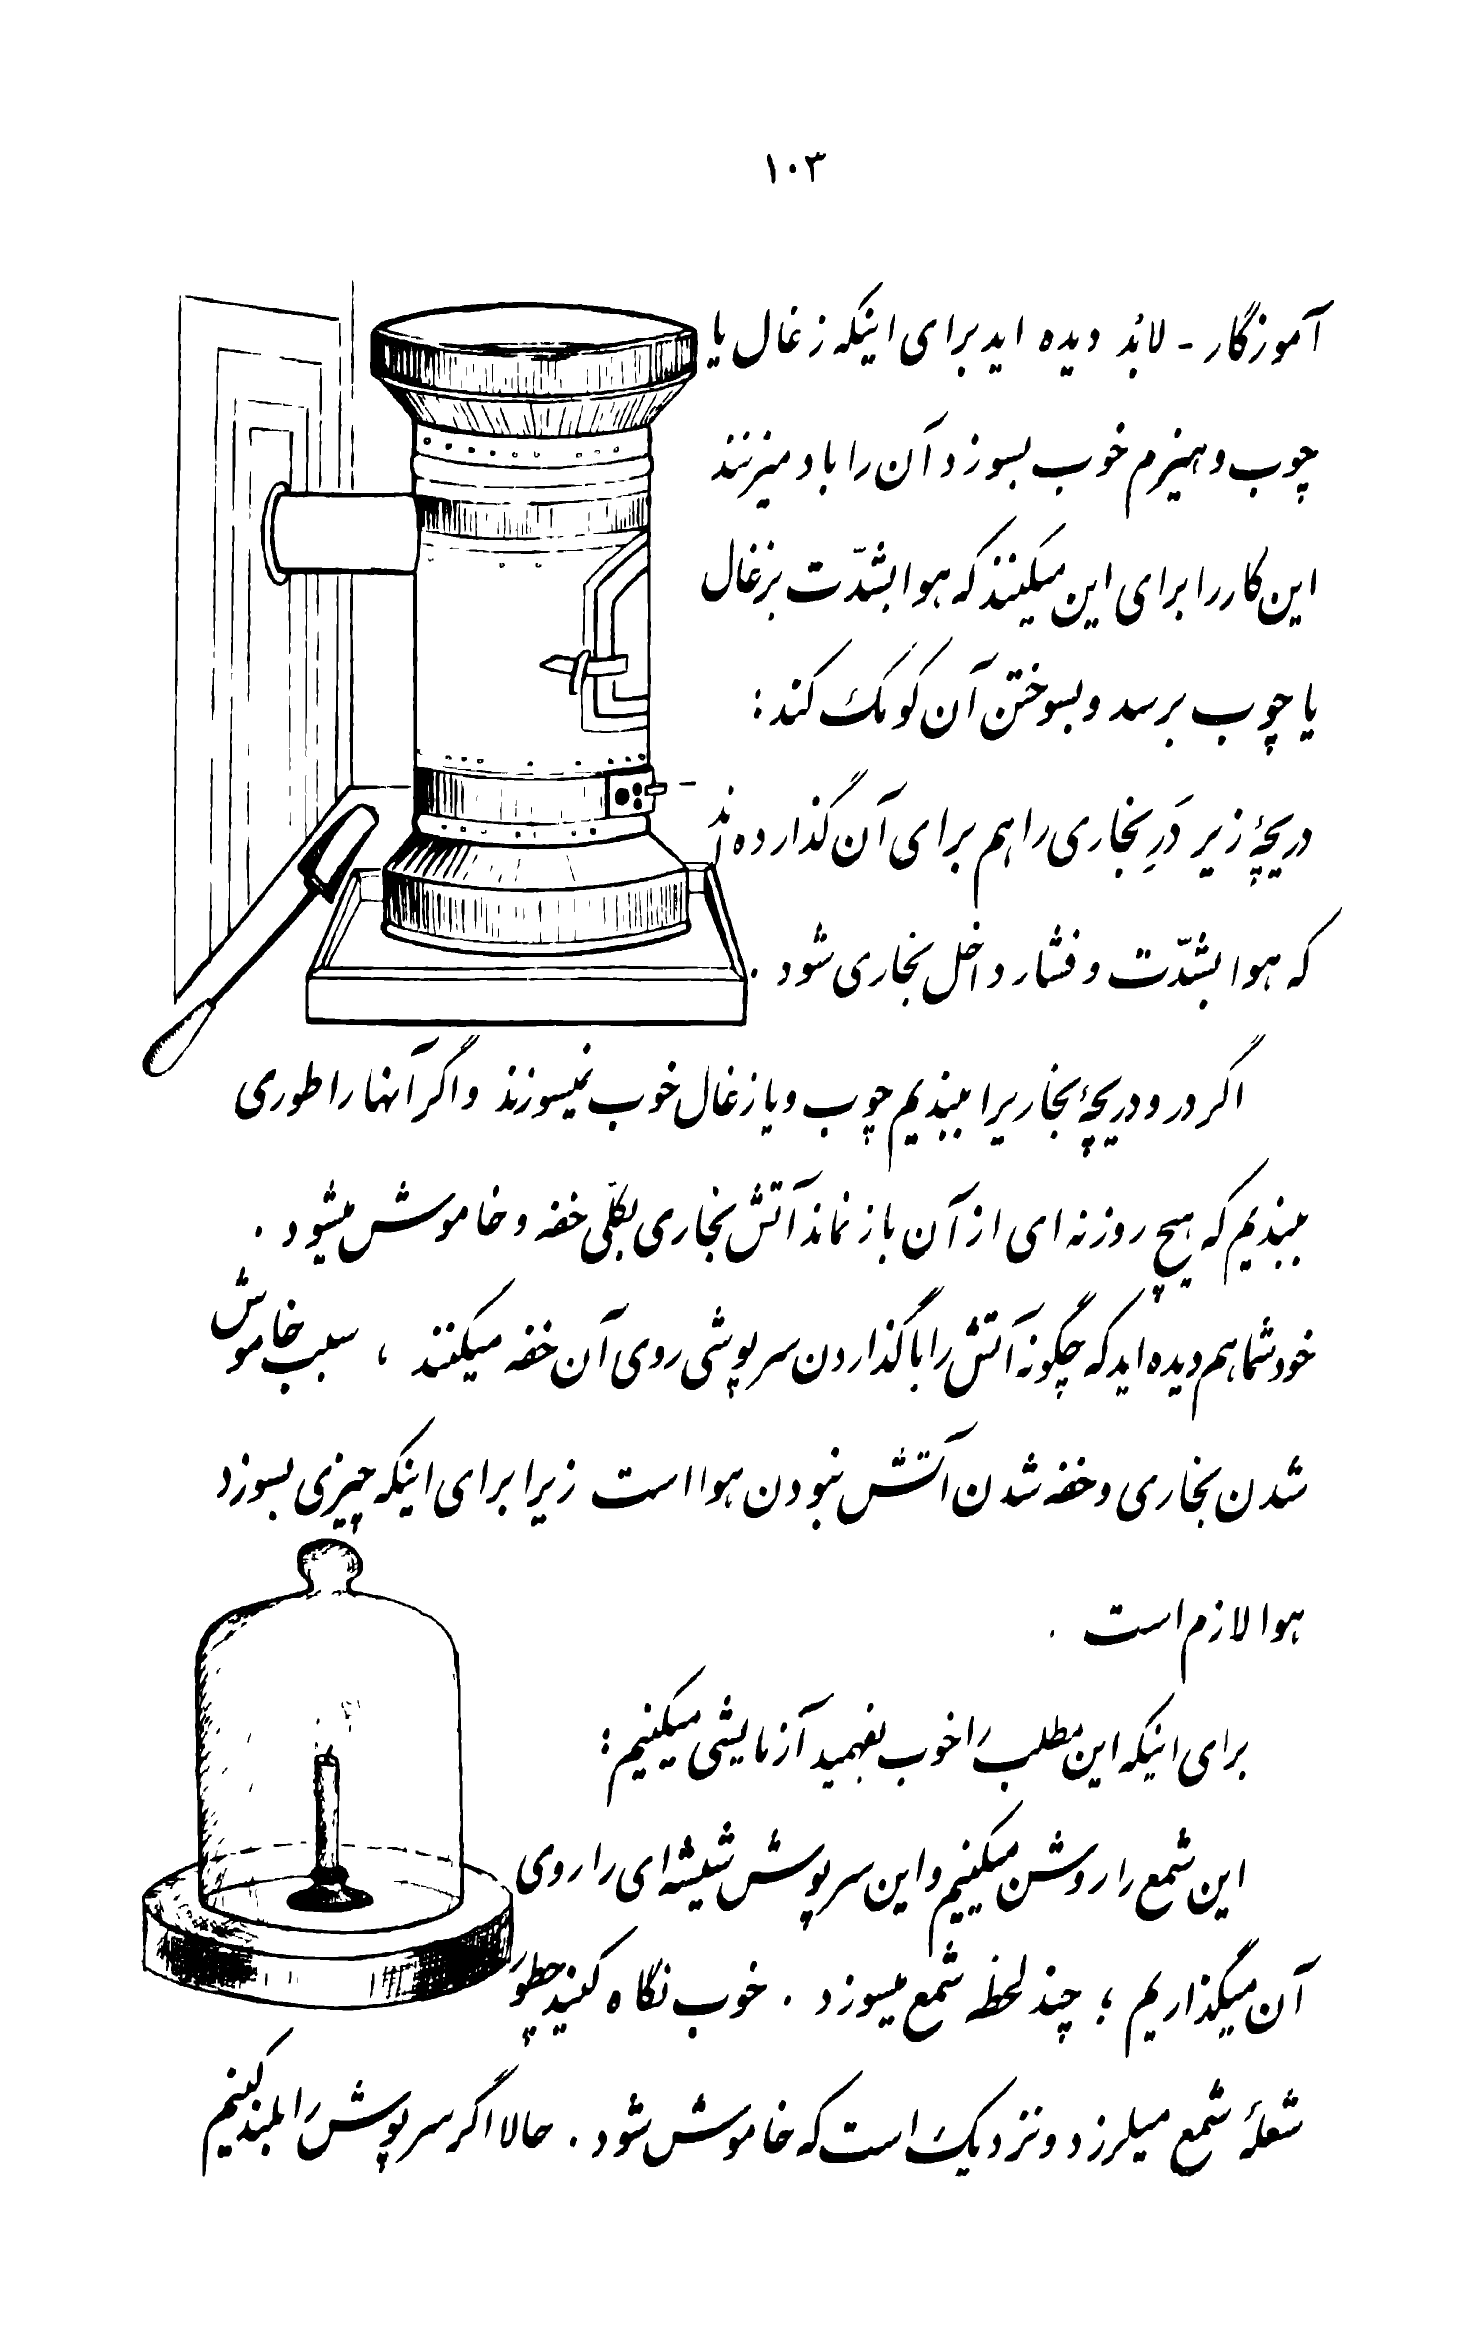 ۱۰۳
آموزگار - لابُد دیده اید برای اینکه زغال یا
چوب و هیزم خوب بسوزد آن را باد میزنند
این کار را برای این میکنند که هوا بشدّت بزغال
یا چوب برسد و بسوختن آن کومک کند :
دریچهٔ زیر دَرِ بخاری را هم برای آن گذارده‌اند
که هوا بشدّت و فشار داخل بخاری شود .
اگر در و دریچهٔ بخاریرا ببندیم چوب و یا زغال خوب نمیسوزند و اگر آنها را طوری
ببندیم که هیچ روزنه ای از آن باز نماند آتش بخاری بکلّی خفه و خاموش میشود .
خود شما هم دیده اید که چگونه آتش را با گذاردن سرپوشی روی آن خفه میکنند ، سبب خاموش
شدن بخاری و خفه شدن آتش نبودن هوا است زیرا برای اینکه چیزی بسوزد
هوا لازم است .
برای اینکه این مطلب را خوب بفهمید آزمایشی میکنیم :
این شمع را روشن میکنیم و این سرپوش شیشه ای را روی
آن میگذاریم ؛ چند لحظه شمع میسوزد . خوب نگاه کنید چطور
شعلهٔ شمع میلرزد و نزدیک است که خاموش شود . حالا اگر سرپوش را بلند کنیم